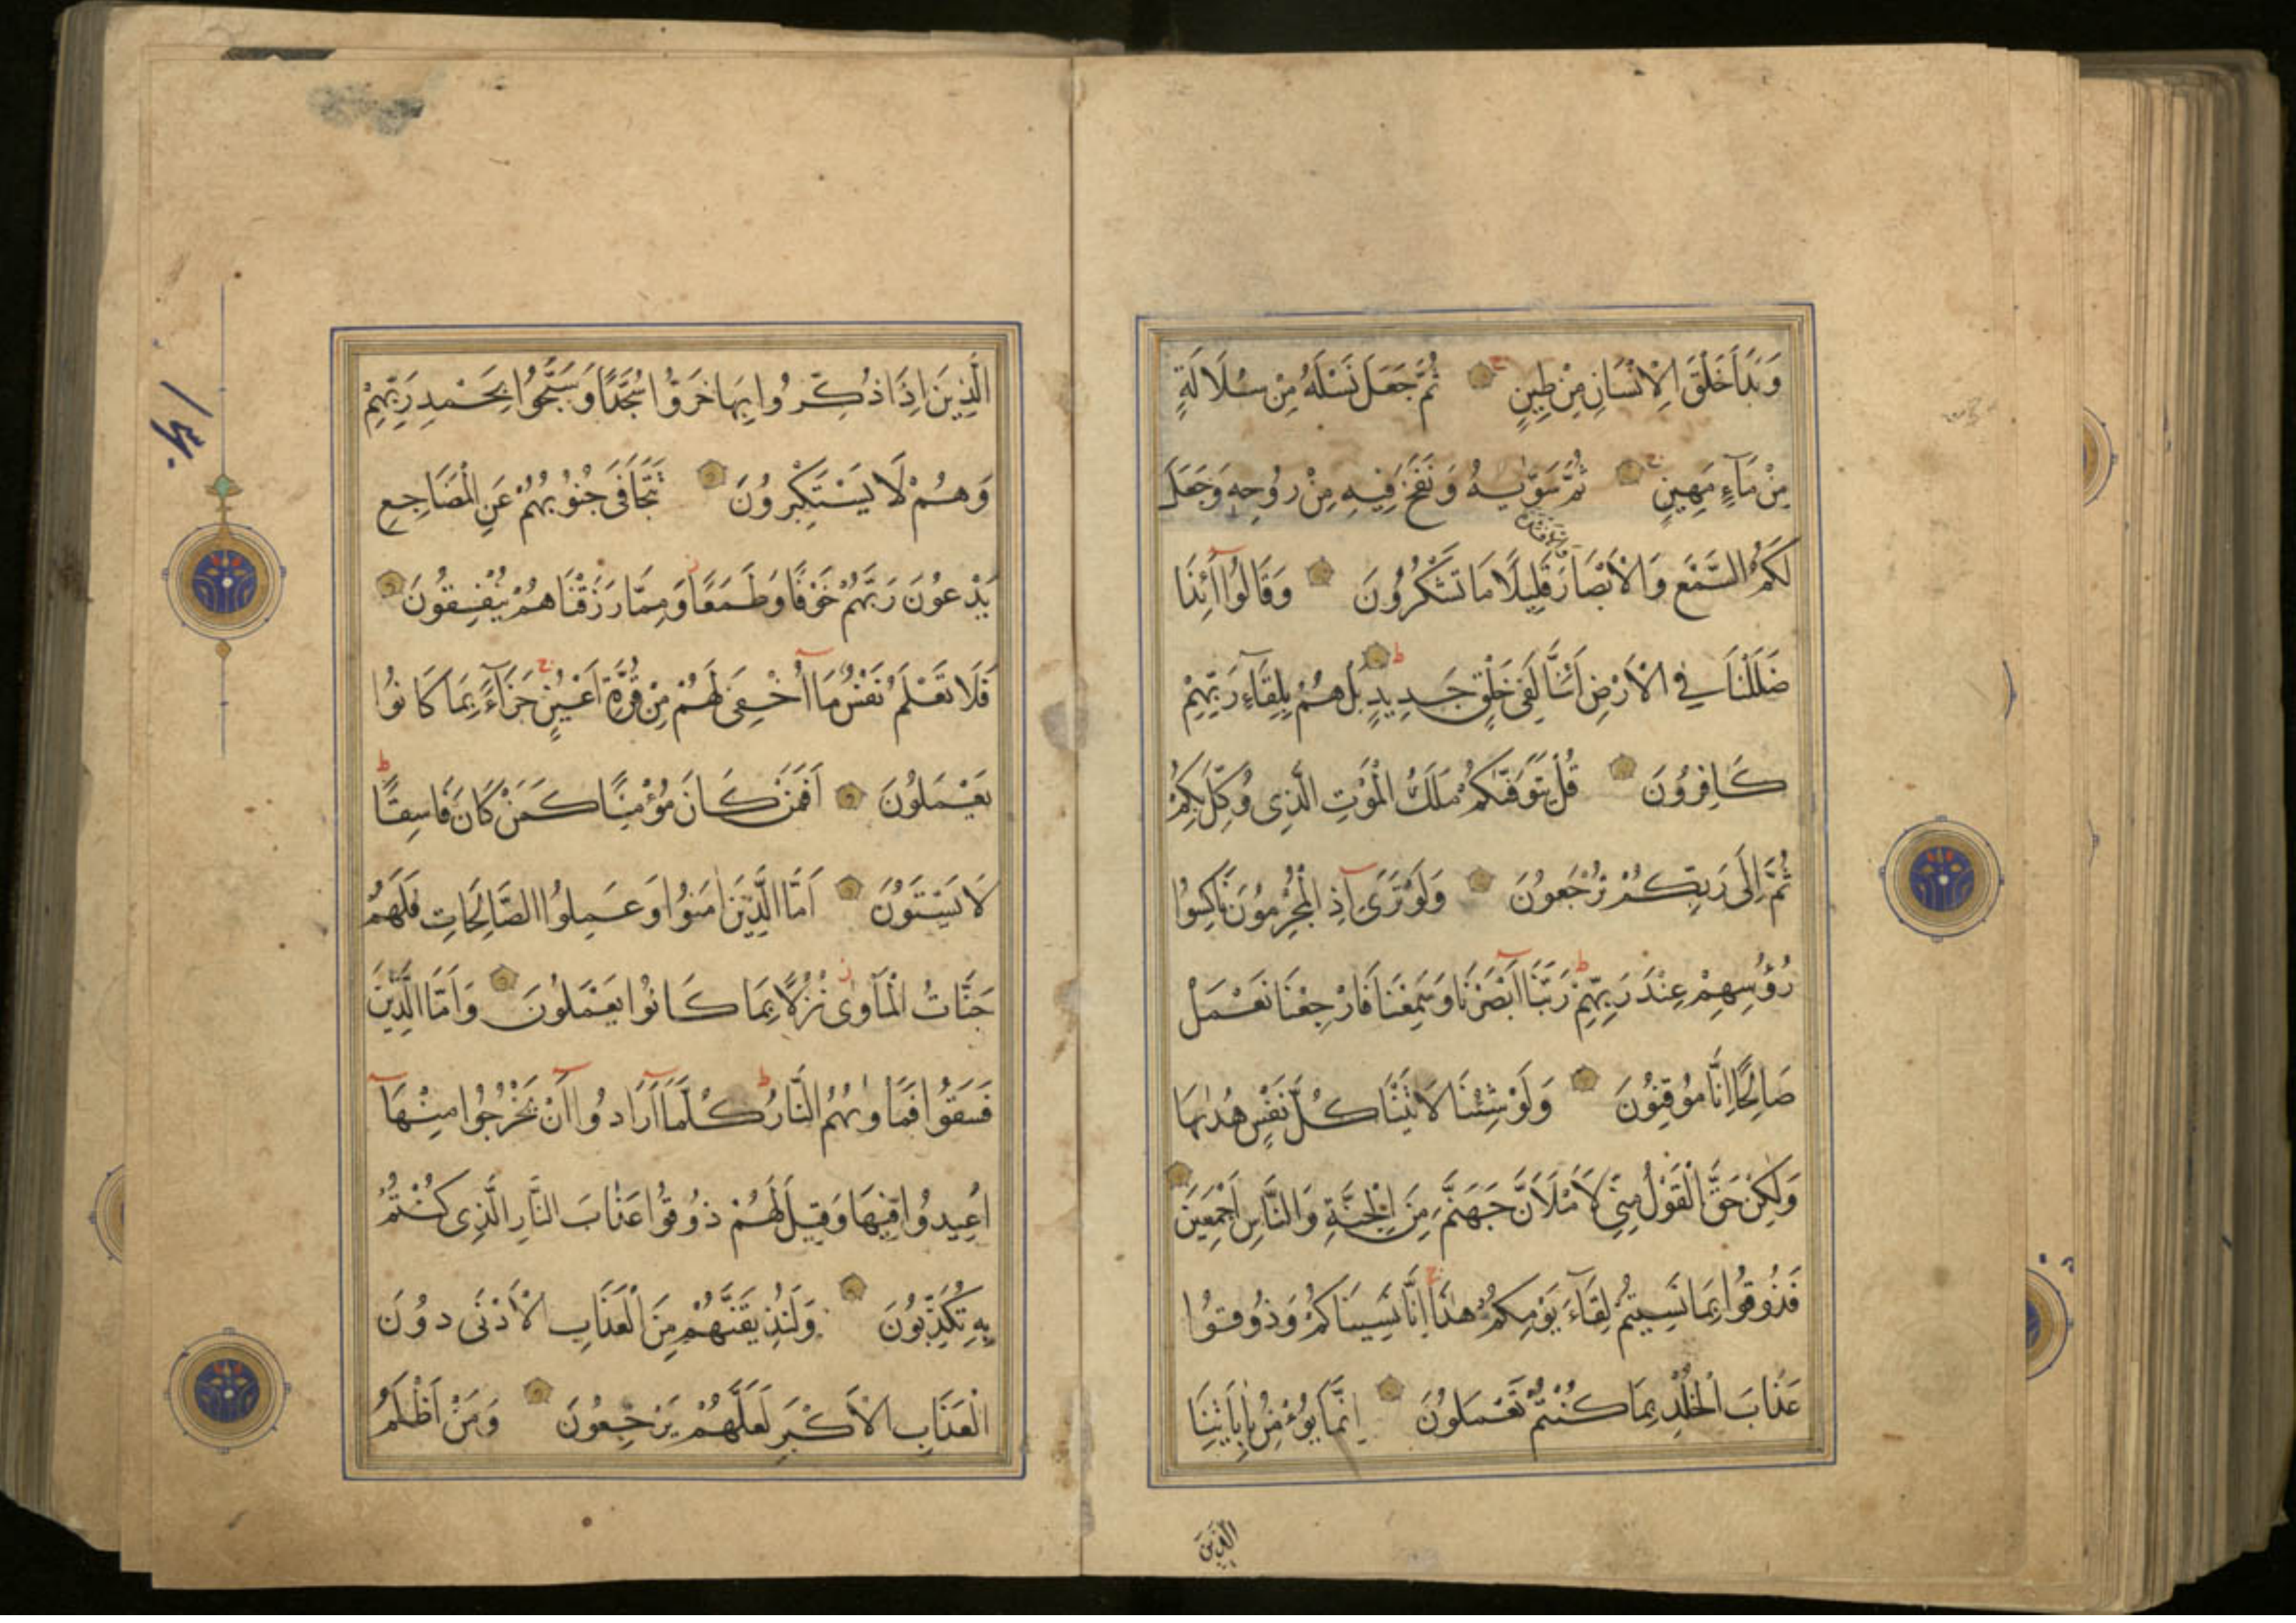 وَبَدَأَ خَلْقَ الْاِنْسَانِ مِنْ طِينٍ ج ثُمَّ جَعَلَ نَسْلَهُ مِنْ سُلَالَةٍ
مِنْ مَآءٍ مَهِينٍ ج ثُمَّ سَوّٰيهُ وَنَفَخَ فِيهِ مِنْ رُوحِهِ وَجَعَلَ
لَكُمُ السَّمْعَ وَالْاَبْصَارَ وَالْاَفْئِدَةَ قَلِيلًا مَا تَشْكُرُونَ وَقَالُوا أَئِذَا
ضَلَلْنَا فِي الْاَرْضِ اَئِنَّا لَفِي خَلْقٍ جَدِيدٍ ط بَلْ هُمْ بِلِقَآءِ رَبِّهِمْ
كَافِرُونَ قُلْ يَتَوَفّٰيكُمْ مَلَكُ الْمَوْتِ الَّذِي وُكِّلَ بِكُمْ
ثُمَّ اِلَى رَبِّكُمْ تُرْجَعُونَ وَلَوْ تَرَى اِذِ الْمُجْرِمُونَ نَاكِسُوا
رُؤُسِهِمْ عِنْدَ رَبِّهِمْ ط رَبَّنَا اَبْصَرْنَا وَسَمِعْنَا فَارْجِعْنَا نَعْمَلْ
صَالِحًا اِنَّا مُوقِنُونَ وَلَوْ شِئْنَا لَاٰتَيْنَا كُلَّ نَفْسٍ هُدٰيهَا
وَلٰكِنْ حَقَّ الْقَوْلُ مِنِّي لَأَمْلَأَنَّ جَهَنَّمَ مِنَ الْجِنَّةِ وَالنَّاسِ اَجْمَعِينَ
فَذُوقُوا بِمَا نَسِيتُمْ لِقَآءَ يَوْمِكُمْ هٰذَا ج اِنَّا نَسِينَاكُمْ وَذُوقُوا
عَذَابَ الْخُلْدِ بِمَا كُنْتُمْ تَعْمَلُونَ اِنَّمَا يُؤْمِنُ بِاٰيَاتِنَا
الَّذِينَ
الَّذِينَ اِذَا ذُكِّرُوا بِهَا خَرُّوا سُجَّدًا وَسَبَّحُوا بِحَمْدِ رَبِّهِمْ
وَهُمْ لَا يَسْتَكْبِرُونَ تَتَجَافَى جُنُوبُهُمْ عَنِ الْمَضَاجِعِ
يَدْعُونَ رَبَّهُمْ خَوْفًا وَطَمَعًا وَمِمَّا رَزَقْنَاهُمْ يُنْفِقُونَ
فَلَا تَعْلَمُ نَفْسٌ مَا اُخْفِيَ لَهُمْ مِنْ قُرَّةِ اَعْيُنٍ ج جَزَآءً بِمَا كَانُوا
يَعْمَلُونَ اَفَمَنْ كَانَ مُؤْمِنًا كَمَنْ كَانَ فَاسِقًا ط
لَا يَسْتَوُونَ اَمَّا الَّذِينَ اٰمَنُوا وَعَمِلُوا الصَّالِحَاتِ فَلَهُمْ
جَنَّاتُ الْمَأْوٰى ز نُزُلًا بِمَا كَانُوا يَعْمَلُونَ وَاَمَّا الَّذِينَ
فَسَقُوا فَمَأْوٰيهُمُ النَّارُ ط كُلَّمَا اَرَادُوا اَنْ يَخْرُجُوا مِنْهَا
اُعِيدُوا فِيهَا وَقِيلَ لَهُمْ ذُوقُوا عَذَابَ النَّارِ الَّذِي كُنْتُمْ
بِهِ تُكَذِّبُونَ وَلَنُذِيقَنَّهُمْ مِنَ الْعَذَابِ الْاَدْنَى دُونَ
الْعَذَابِ الْاَكْبَرِ لَعَلَّهُمْ يَرْجِعُونَ وَمَنْ اَظْلَمُ